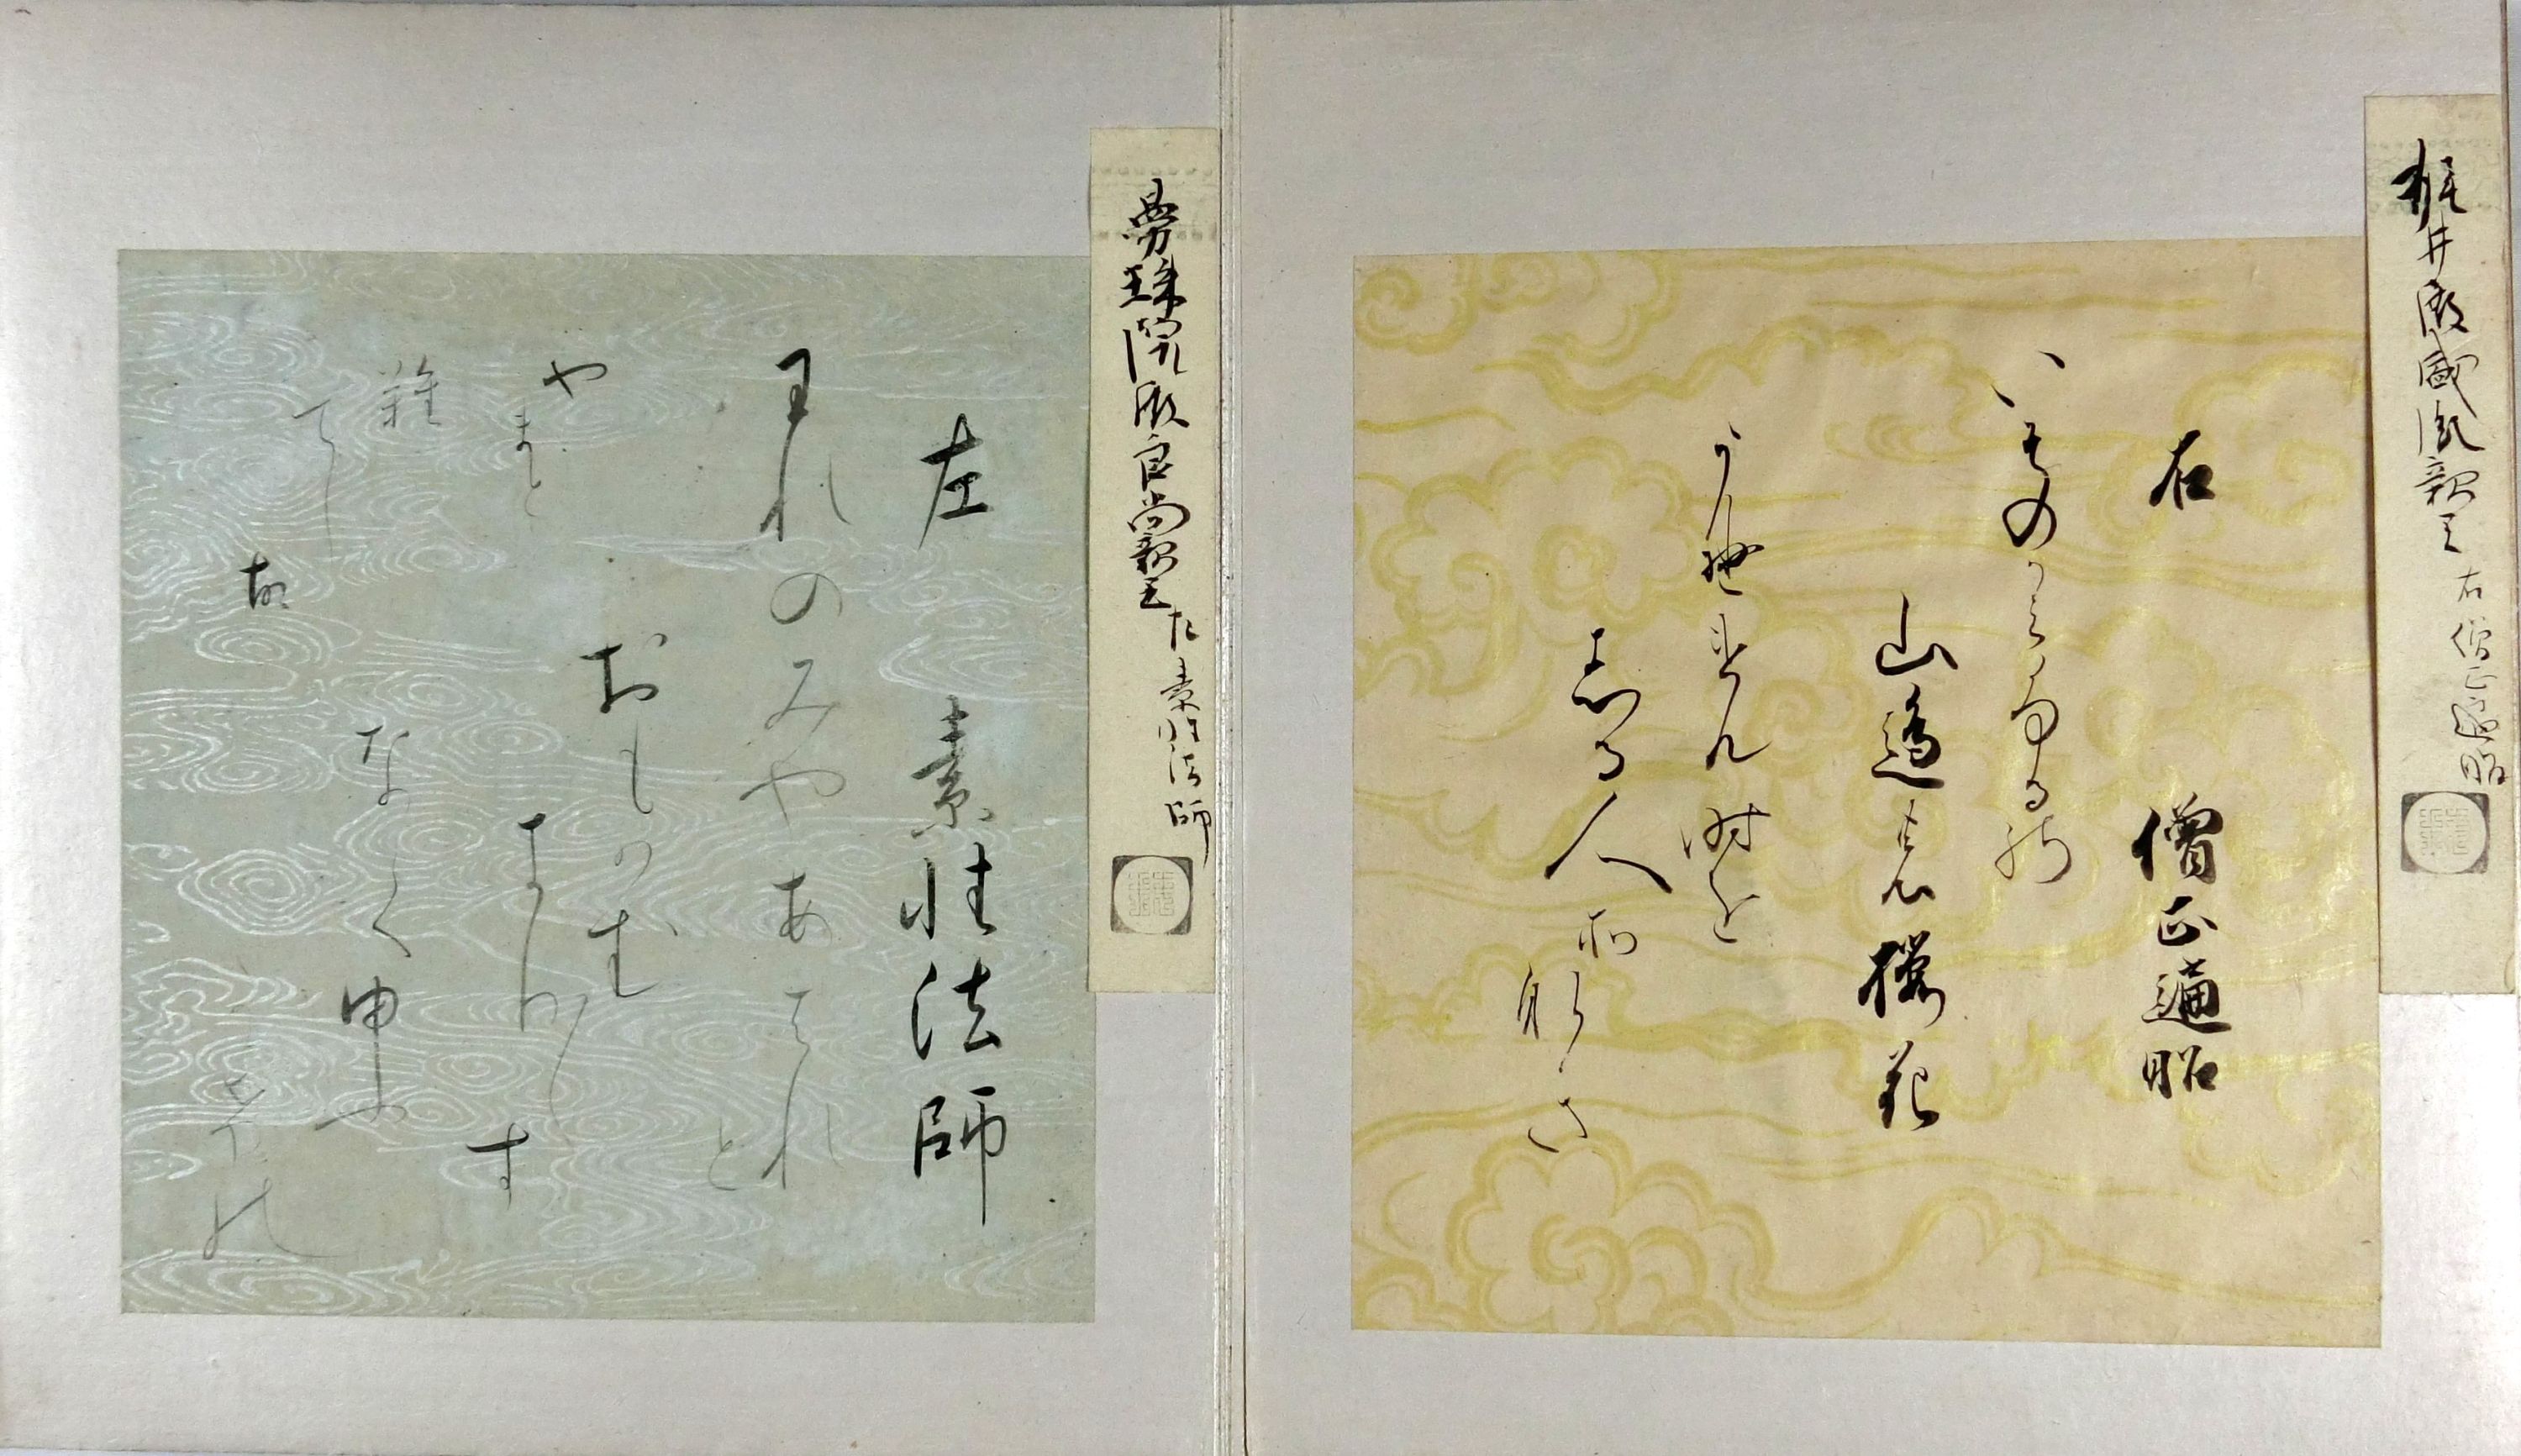 梶井殿盛胤親王 右 僧正遍昭
右 僧正遍昭
いそのかみふる能
山邊の櫻花
うゑけん時を
志る人所那き
曼殊院殿良尚親王 左 素性法師
左 素性法師
われのみやあはれと
おもはむ
きり〱す
なく夕
かけの
やまと
難
てし
故